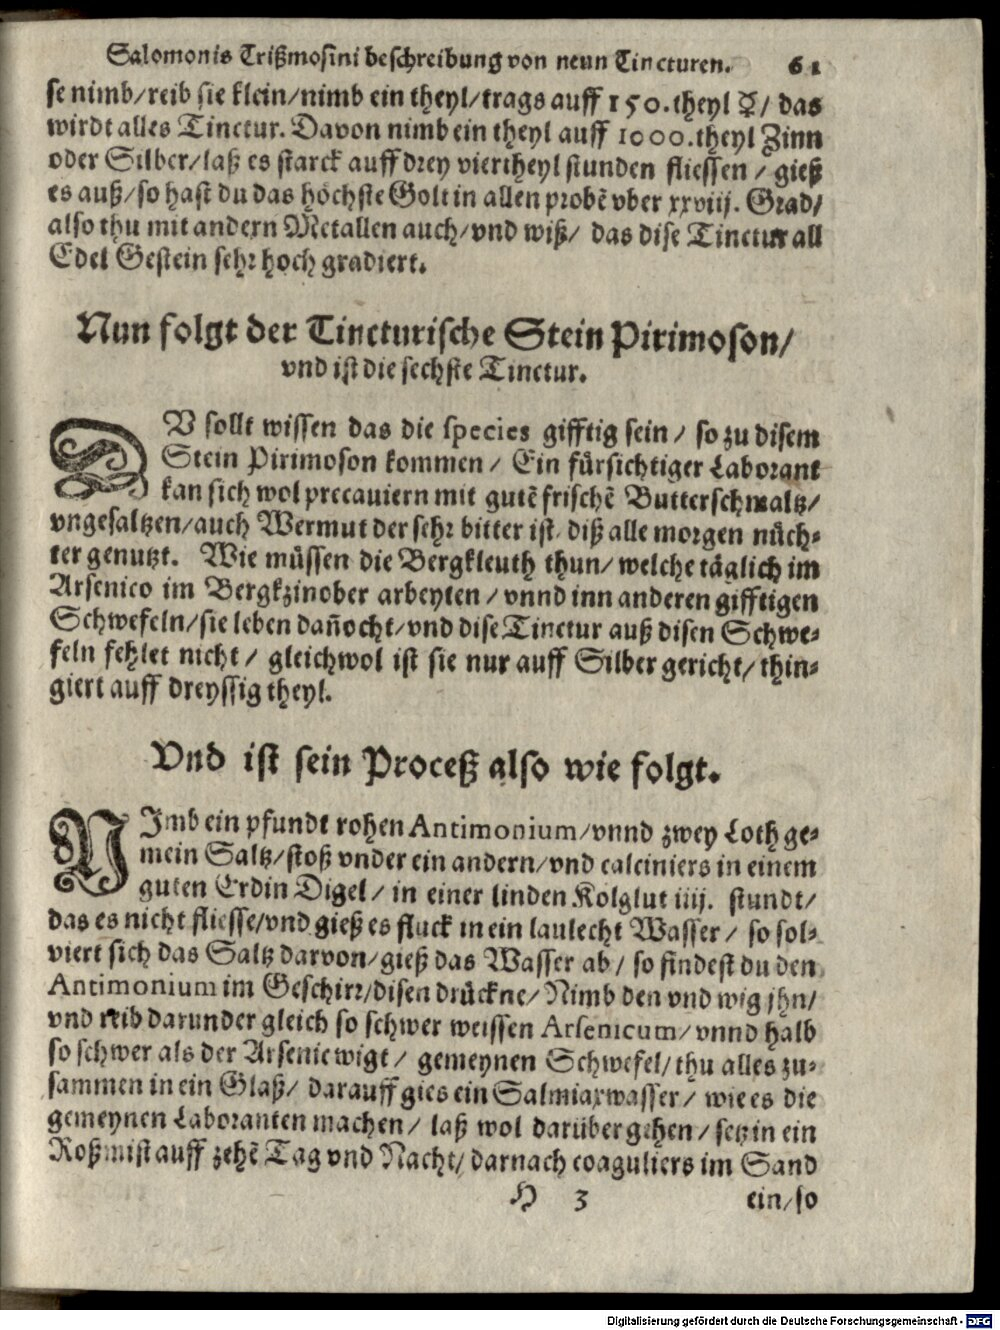 Salomonis Trißmosini beschreibung von neun Tincturen. 61
se nimb/reib sie klein/nimb ein theyl/trags auff 150. theyl ☿/ das
wirdt alles Tinctur. Davon nimb ein theyl auff 1000. theyl Zinn
oder Silber/laß es starck auff drey viertheyl stunden fliessen / gieß
es auß/so hast du das höchste Golt in allen probẽ vber xxviij. Grad/
also thu mit andern Metallen auch/vnd wiß/ das dise Tinctur all
Edel Gestein sehr hoch gradiert.
Nun folgt der Tincturische Stein Pirimoson/
vnd ist die sechste Tinctur.
DV sollt wissen das die species gifftig sein / so zu disem
Stein Pirimoson kommen / Ein fürsichtiger Laborant
kan sich wol precauiern mit gutẽ frischẽ Butterschmaltz/
vngesaltzen/auch Wermut der sehr bitter ist/ diß alle morgen nüch-
ter genutzt. Wie müssen die Bergkleuth thun/ welche täglich im
Arsenico im Bergkzinober arbeyten / vnnd inn anderen gifftigen
Schwefeln/sie leben dañocht/vnd dise Tinctur auß disen Schwe-
feln fehlet nicht / gleichwol ist sie nur auff Silber gericht/ thin-
giert auff dreyssig theyl.
Vnd ist sein Proceß also wie folgt.
NImb ein pfundt rohen Antimonium/vnnd zwey Loth ge-
mein Saltz/stoß vnder ein andern/vnd calciniers in einem
guten Erdin Digel / in einer linden Kolglut iiij. stundt/
das es nicht fliesse/vnd gieß es fluck in ein laulecht Wasser / so sol-
viert sich das Saltz darvon/gieß das Wasser ab / so findest du den
Antimonium im Geschirr/disen drückne/ Nimb den vnd wig jhn/
vnd reib darunder gleich so schwer weissen Arsenicum/ vnnd halb
so schwer als der Arsenic wigt / gemeynen Schwefel/ thu alles zu-
sammen in ein Glaß/ darauff gies ein Salmiaxwasser / wie es die
gemeynen Laboranten machen / laß wol darüber gehen / setz in ein
Roßmist auff zehẽ Tag vnd Nacht/ darnach coaguliers im Sand
H 3 ein/so
Digitalisierung gefördert durch die Deutsche Forschungsgemeinschaft - DFG